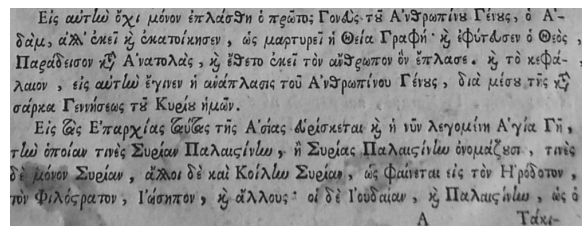 Εἰς αὐτὼ ὄχι μόνον ἐπλάσθη ὁ πρῶτος Γονεὺς τοῦ Ἀνθρωπίνου Γένους, ὁ Ἀ-
δὰμ, ἀλλ' ἐκεῖ καὶ ἐκατοίκησεν, ὡς μαρτυρεῖ ἡ Θεία Γραφή· καὶ ἐφύτευσεν ὁ Θεὸς
Παράδεισον κατ' Ἀνατολὰς, καὶ ἔθετο ἐκεῖ τὸν ἄνθρωπον ὃν ἔπλασε. καὶ τὸ κεφά-
λαιον, εἰς αὐτὼ ἔγινεν ἡ ἀνάπλασις τοῦ Ἀνθρωπίνου Γένους, διὰ μέσου τῆς κατὰ
σάρκα Γεννήσεως τοῦ Κυρίου ἡμῶν.
Εἰς τὰς Ἐπαρχίας ταύτας τῆς Ἀσίας εὑρίσκεται καὶ ἡ νῦν λεγομένη Ἁγία Γῆ,
τὼ ὁποίαν τινὲς Συρίαν Παλαιστίνω, ἢ Συρίας Παλαιστίνω ὀνομάζουσι, τινὲς
δὲ μόνον Συρίαν, ἄλλοι δὲ καὶ Κοίλω Συρίαν, ὡς φαίνεται εἰς τὸν Ἡρόδοτον,
τὸν Φιλόστρατον, Ἰώσηπον, καὶ ἄλλους· οἱ δὲ Ἰουδαίαν, καὶ Παλαιστίνω, ὡς ὁ
Α Τάκι-